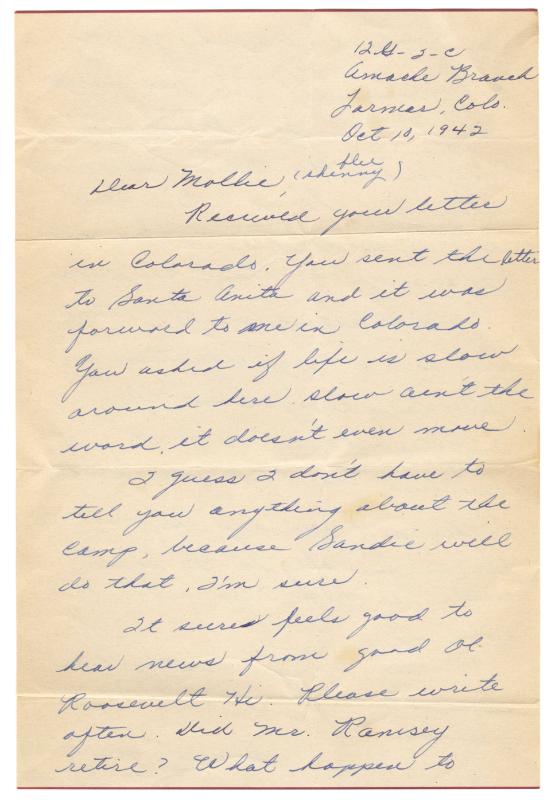 12G-2-C
Amache Branch
Lamar, Colo.
Oct 10, 1942
Dear Mollie, (skinny)
Recieved your letter
in Colorado. You sent the letter
to Santa Anita and it was
forward to me in Colorado.
You asked if life is slow
around here. slow ain't the
word, it doesn't even move.
I guess I don't have to
tell you anything about the
camp, because Sandie will
do that, I'm sure.
It sure feels good to
hear news from good Ol
Roosevelt Hi. Please write
often. Did Mr. Ramsey
retire? What happen to